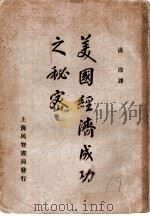 美國經濟成功
之秘密
上海民智書局發行